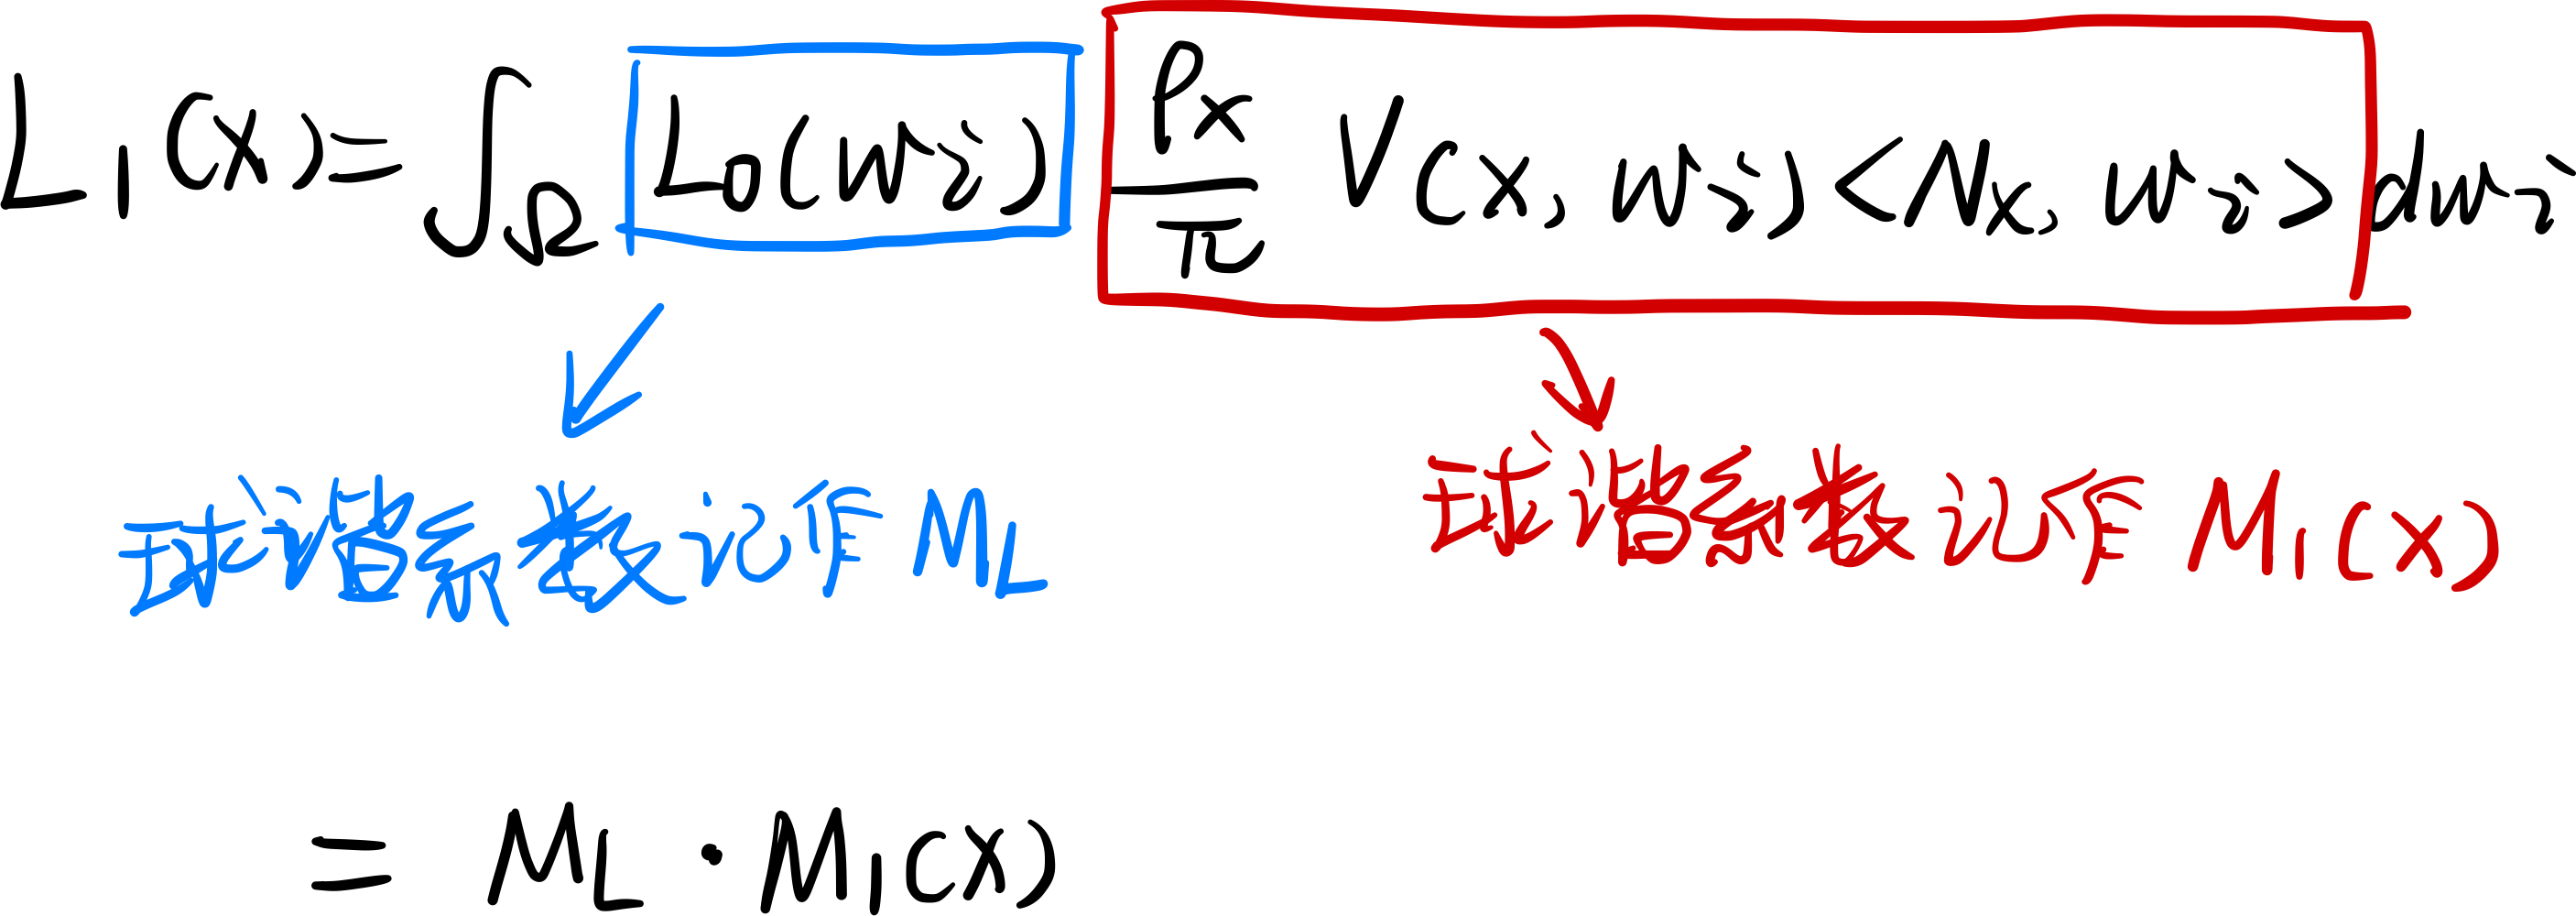 L₁(x) = ∫_Ω L₀(wᵢ) ρₓ/π V(x, wᵢ) <Nₓ, wᵢ> dwᵢ
球谐系数记作 M_L
球谐系数记作 M₁(x)
= M_L · M₁(x)